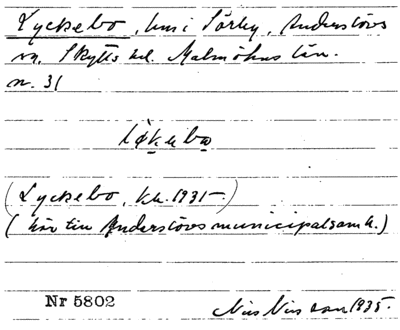 Lyckebo, hus i Sörby, Anderslövs
sn. Skytts hd. Malmöhus län.
n. 31
(Lyckebo, kk. 1931-)
(hör till Anderslövs municipalsamh.)
Nr 5802
Nils Nilsson 1935.